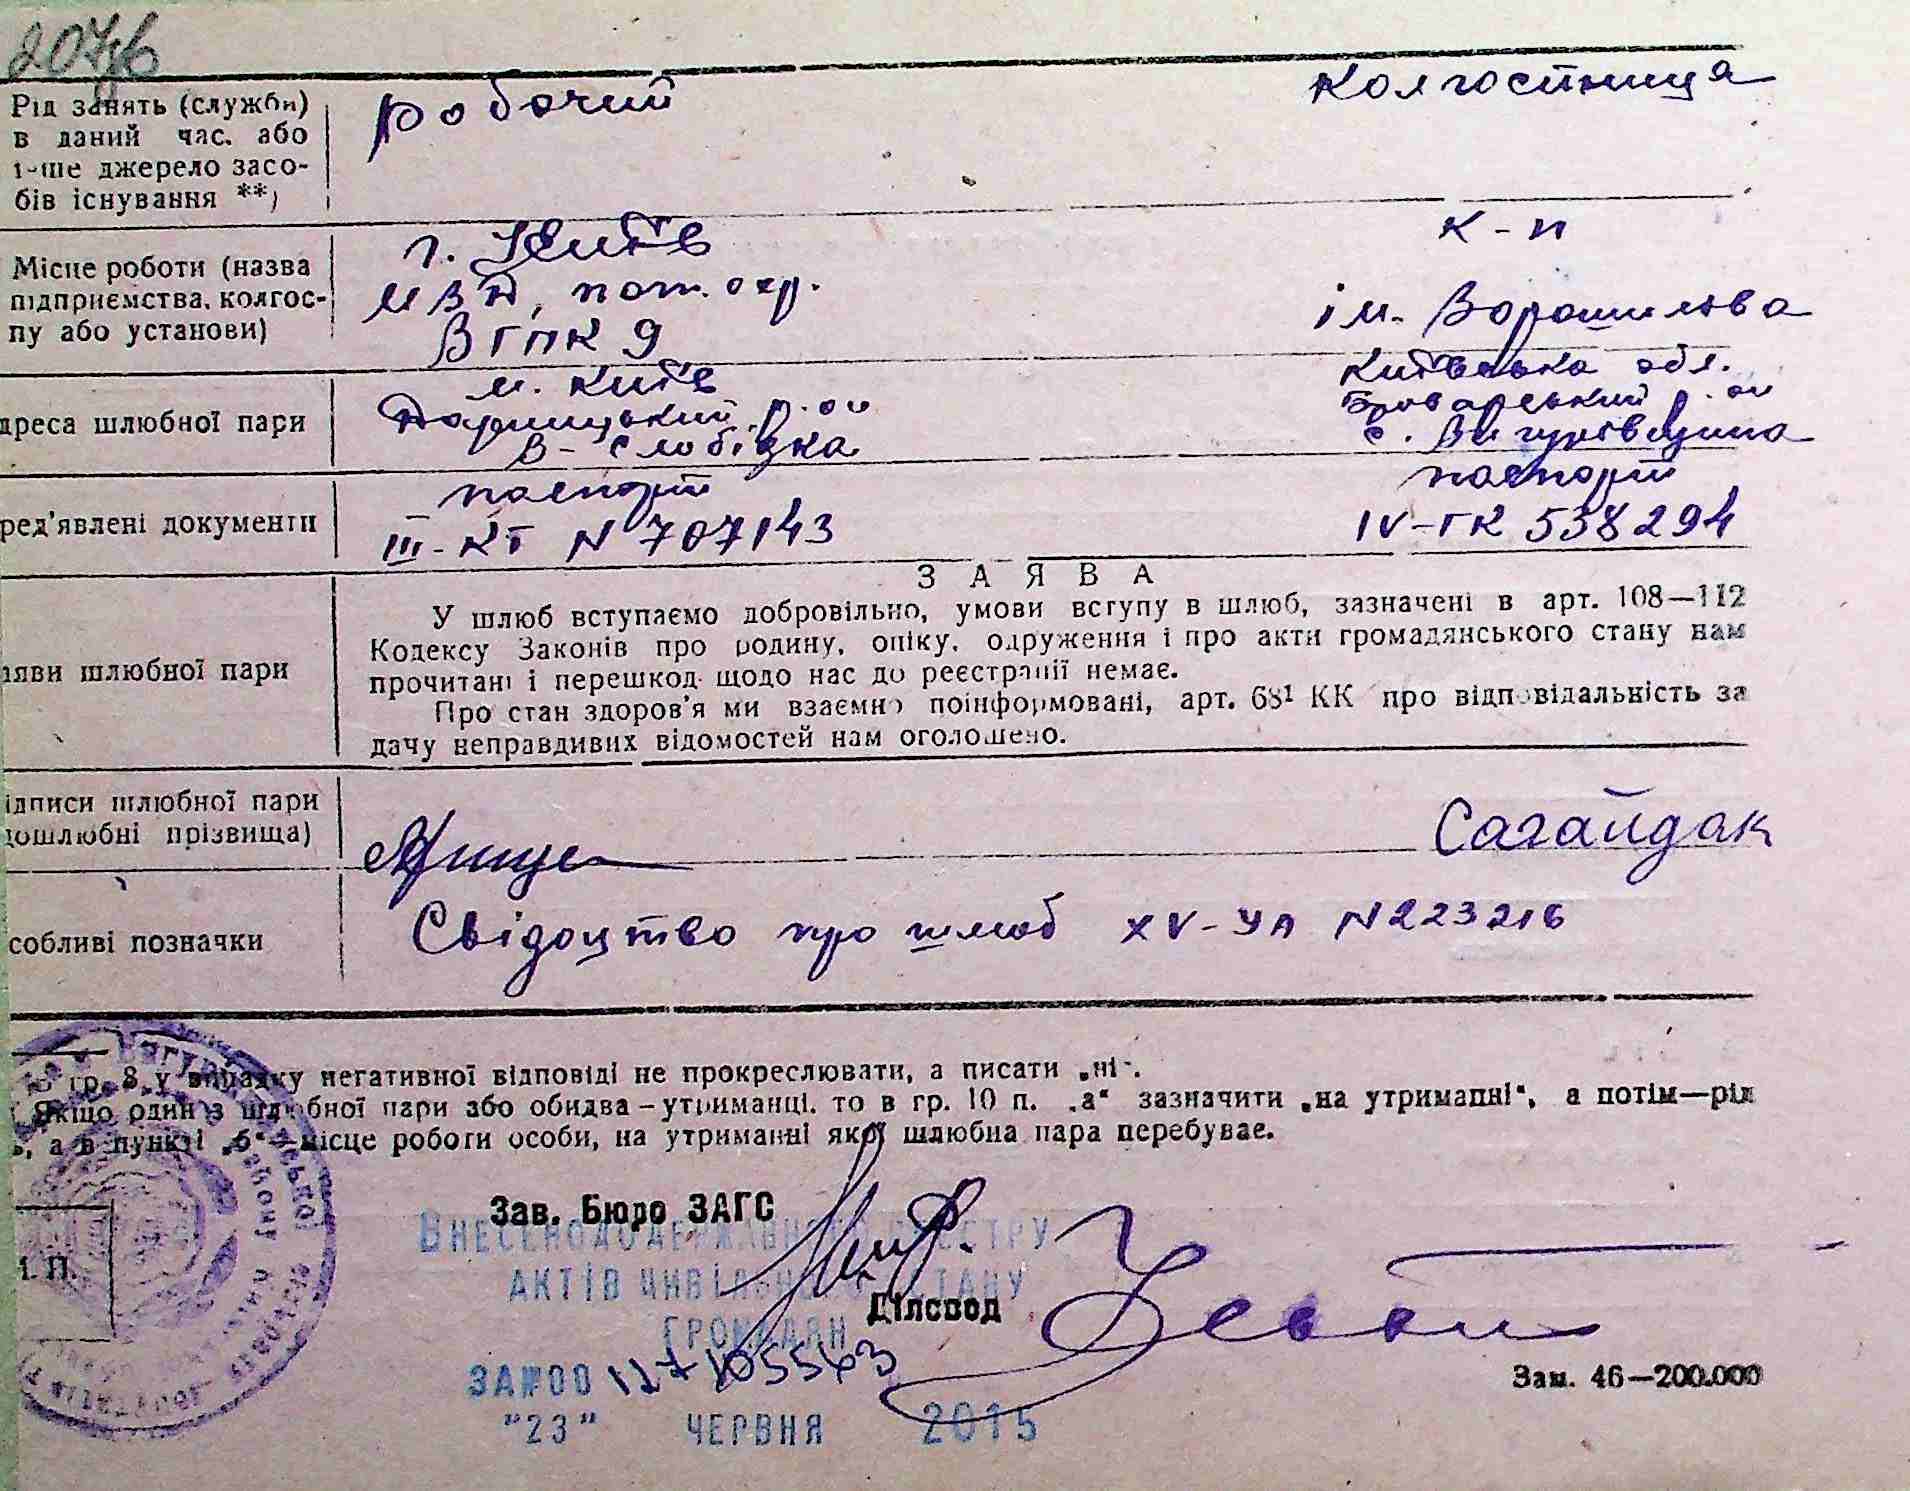 Рід занять (служби)
в даний час, або
інше джерело засо-
бів існування **)
робочий
колгостниця
Місце роботи (назва
підприємства, колгос-
пу або установи)
г. Київ
МВД, пож. охр.
ВГПК 9
к-п
ім. Ворошилова
дреса шлюбної пари
м. Київ
Дарницький р-он
В-Слобідка
Київська обл.
Броварський р-он
с. Вигурівщина
ред'явлені документи
паспорт
III-КТ N 707143
паспорт
IV-ГК 538294
ЗАЯВА
У шлюб вступаємо добровільно, умови вступу в шлюб, зазначені в арт. 108—112
Кодексу Законів про родину, опіку, одруження і про акти громадянського стану нам
прочитані і перешкод щодо нас до реєстрації немає.
Про стан здоров'я ми взаємно поінформовані, арт. 68¹ КК про відповідальність за
дачу неправдивих відомостей нам оголошено.
аяви шлюбної пари
ідписи шлюбної пари
дошлюбні прізвища)
Сагайдак
собливі позначки
Свідоцтво про шлюб XV-УА N 223216
гр. 8 у випадку негативної відповіді не прокреслювати, а писати „ні“.
Якщо один з шлюбної пари або обидва—утриманці, то в гр. 10 п. „а“ зазначити „на утриманні“, а потім—рід
ь, а в пункті „б“—місце роботи особи, на утриманні якої шлюбна пара перебуває.
Зав. Бюро ЗАГС
ВНЕСЕНО ДО ДЕРЖАВНОГО РЕЄСТРУ
АКТІВ ЦИВІЛЬНОГО СТАНУ
ГРОМАДЯН
Діловод
М. П.
ЗА №00
"23" ЧЕРВНЯ 2015
Зам. 46—200.000